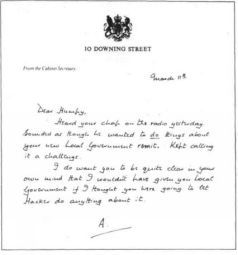 10 DOWNING STREET
From the Cabinet Secretary
March 11th
Dear Humpy,
Heard your chap on the radio yesterday.
Sounded as though he wanted to do things about
your new Local Government remit. Kept calling
it a challenge.
I do want you to be quite clear in your
own mind that I wouldn't have given you Local
Government if I thought you were going to let
Hacker do anything about it.
A.